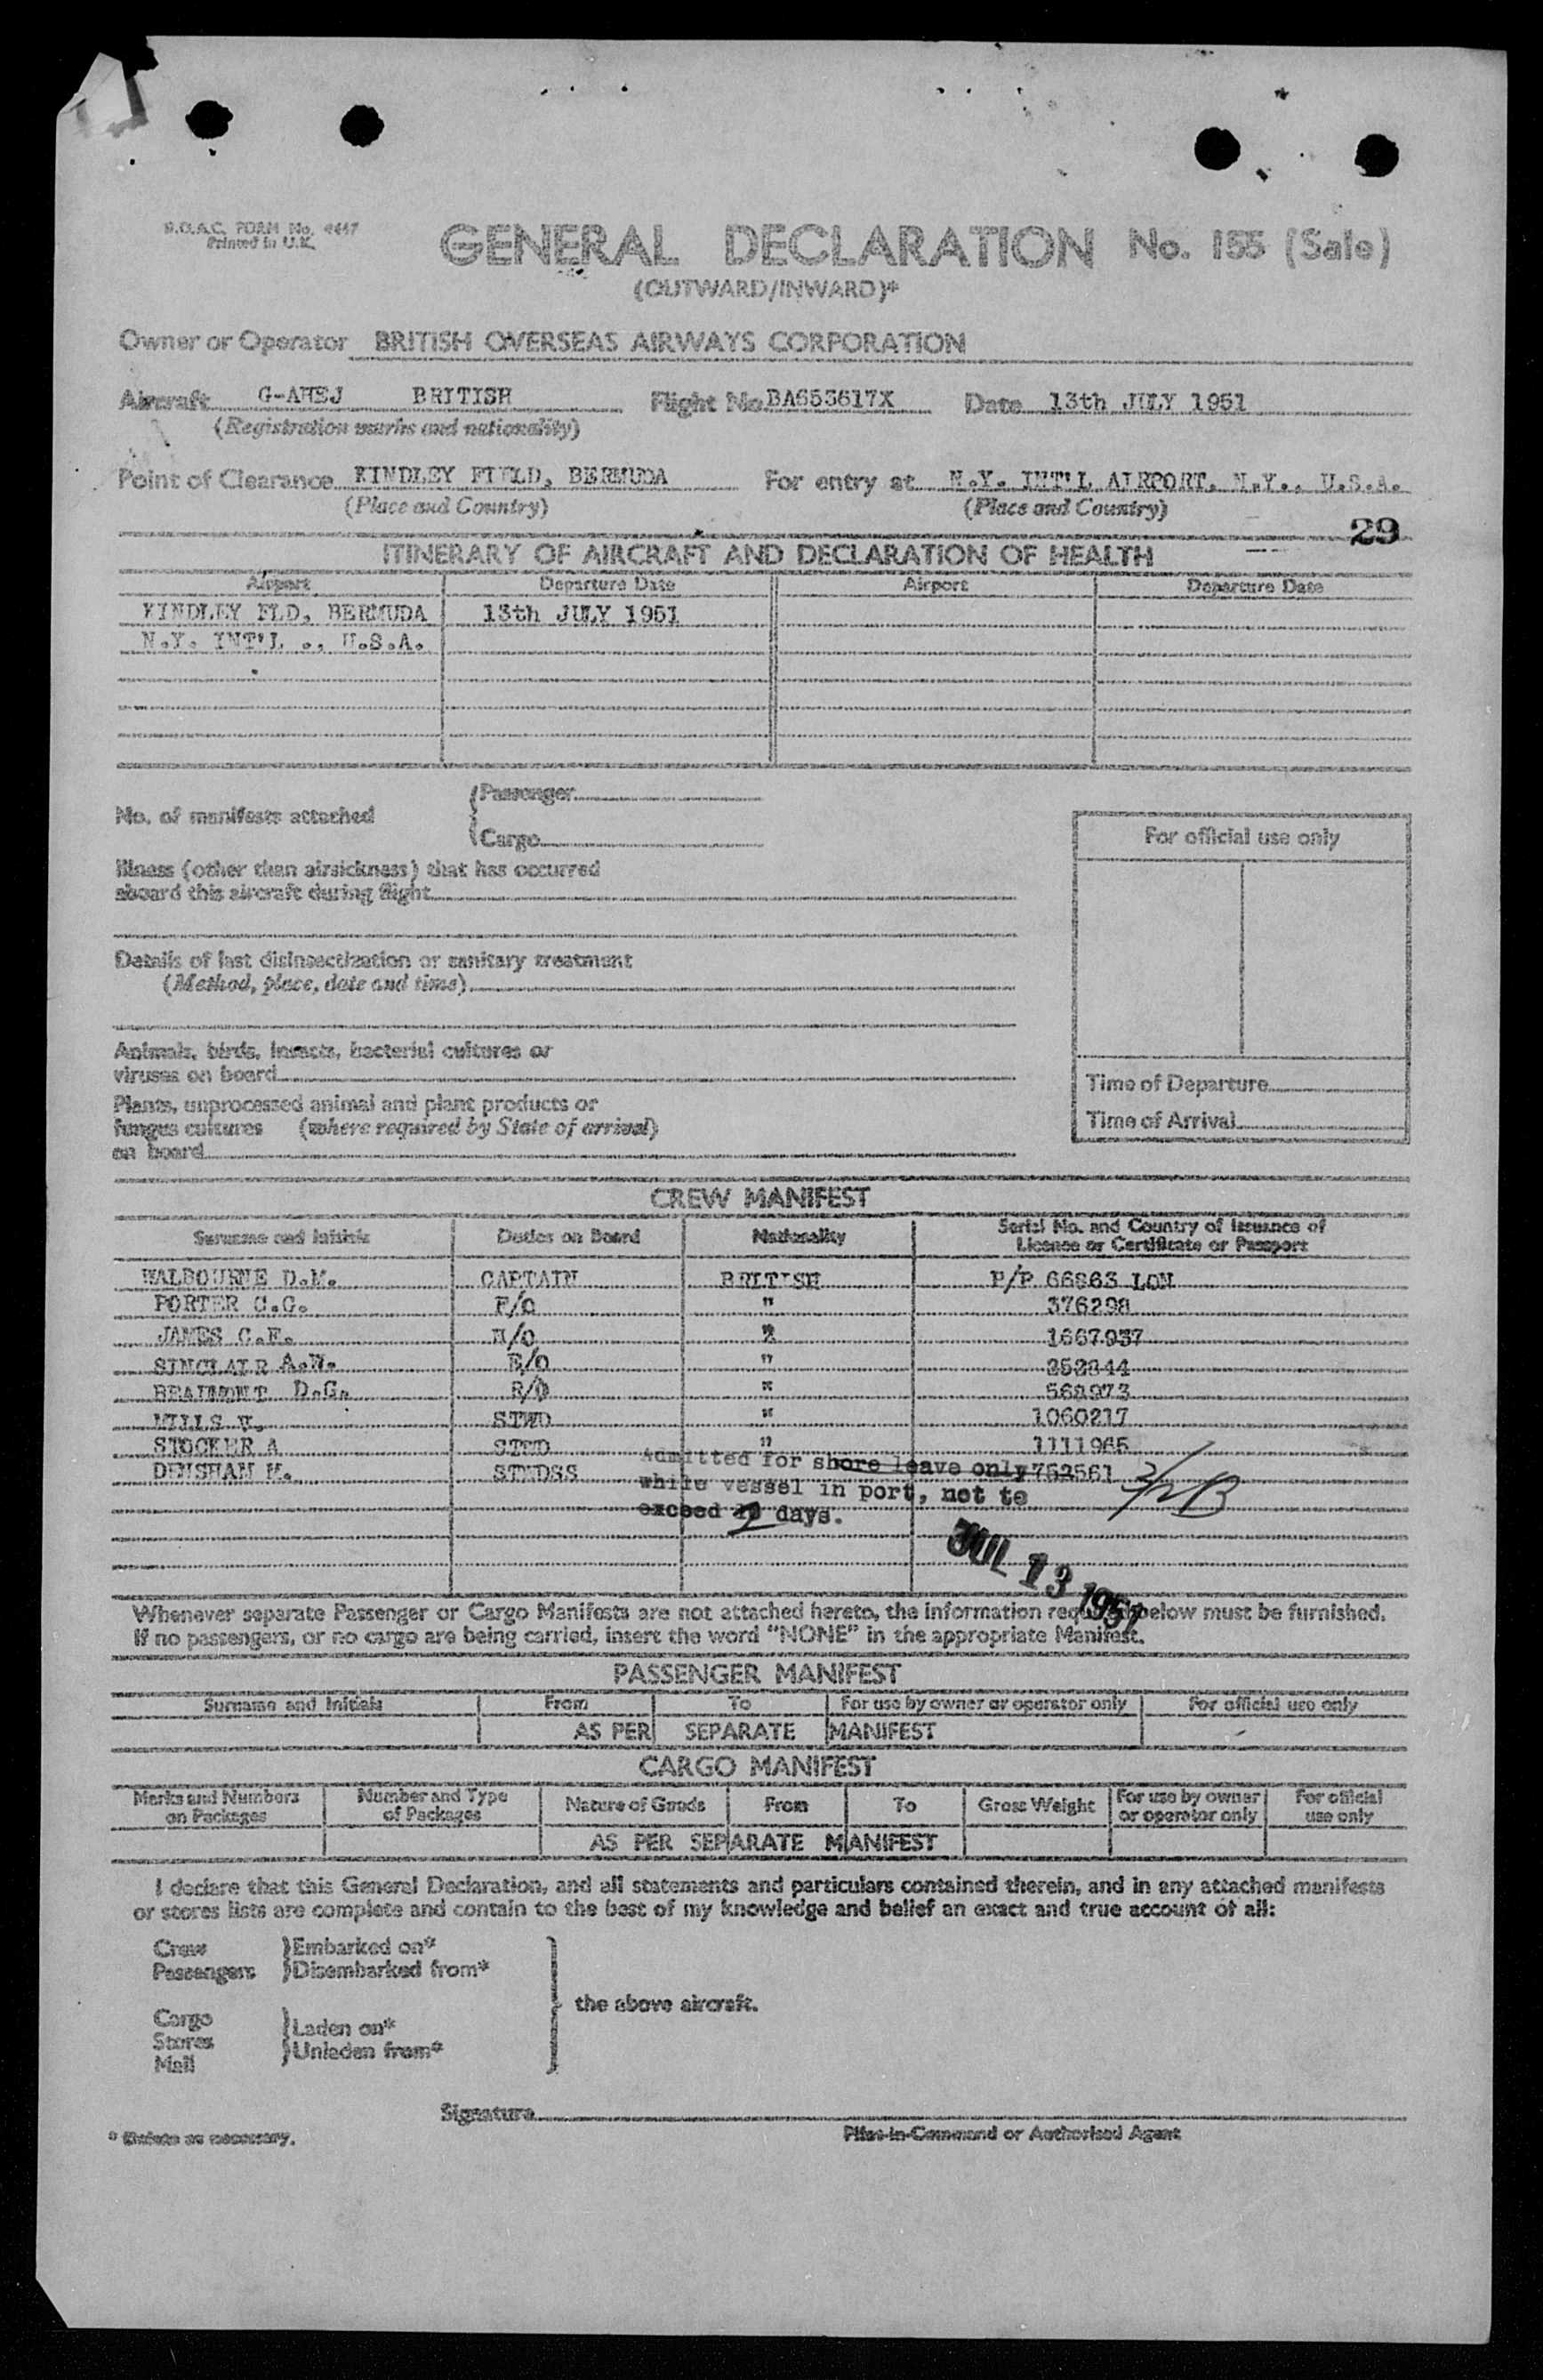 B.O.A.C. FORM No. 4447
Printed in U.K.
GENERAL DECLARATION No. 155 (Sale)
(OUTWARD/INWARD)*
Owner or Operator BRITISH OVERSEAS AIRWAYS CORPORATION
Aircraft G-AHEJ BRITISH Flight No. BA653617X Date 13th JULY 1951
(Registration marks and nationality)
Point of Clearance KINDLEY FIELD, BERMUDA For entry at N.Y. INT'L AIRPORT, N.Y., U.S.A.
(Place and Country) (Place and Country)
29
ITINERARY OF AIRCRAFT AND DECLARATION OF HEALTH
Airport Departure Date Airport Departure Date
KINDLEY FLD, BERMUDA 13th JULY 1951
N.Y. INT'L ., U.S.A.
No. of manifests attached {Passenger
{Cargo
For official use only
Illness (other than airsickness) that has occurred
aboard this aircraft during flight
Details of last disinsectization or sanitary treatment
(Method, place, date and time)
Animals, birds, insects, bacterial cultures or
viruses on board
Time of Departure
Plants, unprocessed animal and plant products or
fungus cultures (where required by State of arrival)
Time of Arrival
on board
CREW MANIFEST
Surname and Initials Duties on Board Nationality Serial No. and Country of Issuance of
Licence or Certificate or Passport
WALBOURNE D.M. CAPTAIN BRITISH P/P 66863 LON
PORTER C.G. F/O " 376298
JAMES C.E. N/O " 1667937
SINCLAIR A.N. E/O " 252844
BEAUMONT D.G. R/O " 568973
MILLS W. STWD " 1060217
STOCKER A STWD " 1111965
DENSHAM M. STWDSS 762561
Admitted for shore leave only
while vessel in port, not to
exceed days.
JUL 13 1951
Whenever separate Passenger or Cargo Manifests are not attached hereto, the information required below must be furnished.
If no passengers, or no cargo are being carried, insert the word "NONE" in the appropriate Manifest.
PASSENGER MANIFEST
Surname and Initials From To For use by owner or operator only For official use only
AS PER SEPARATE MANIFEST
CARGO MANIFEST
Marks and Numbers on Packages Number and Type of Packages Nature of Goods From To Gross Weight For use by owner or operator only For official use only
AS PER SEPARATE MANIFEST
I declare that this General Declaration, and all statements and particulars contained therein, and in any attached manifests
or stores lists are complete and contain to the best of my knowledge and belief an exact and true account of all:
Crew }Embarked on*
Passengers }Disembarked from*
the above aircraft.
Cargo }Laden on*
Stores }Unladen from*
Mail
Signature
* Delete as necessary. Pilot-in-Command or Authorised Agent